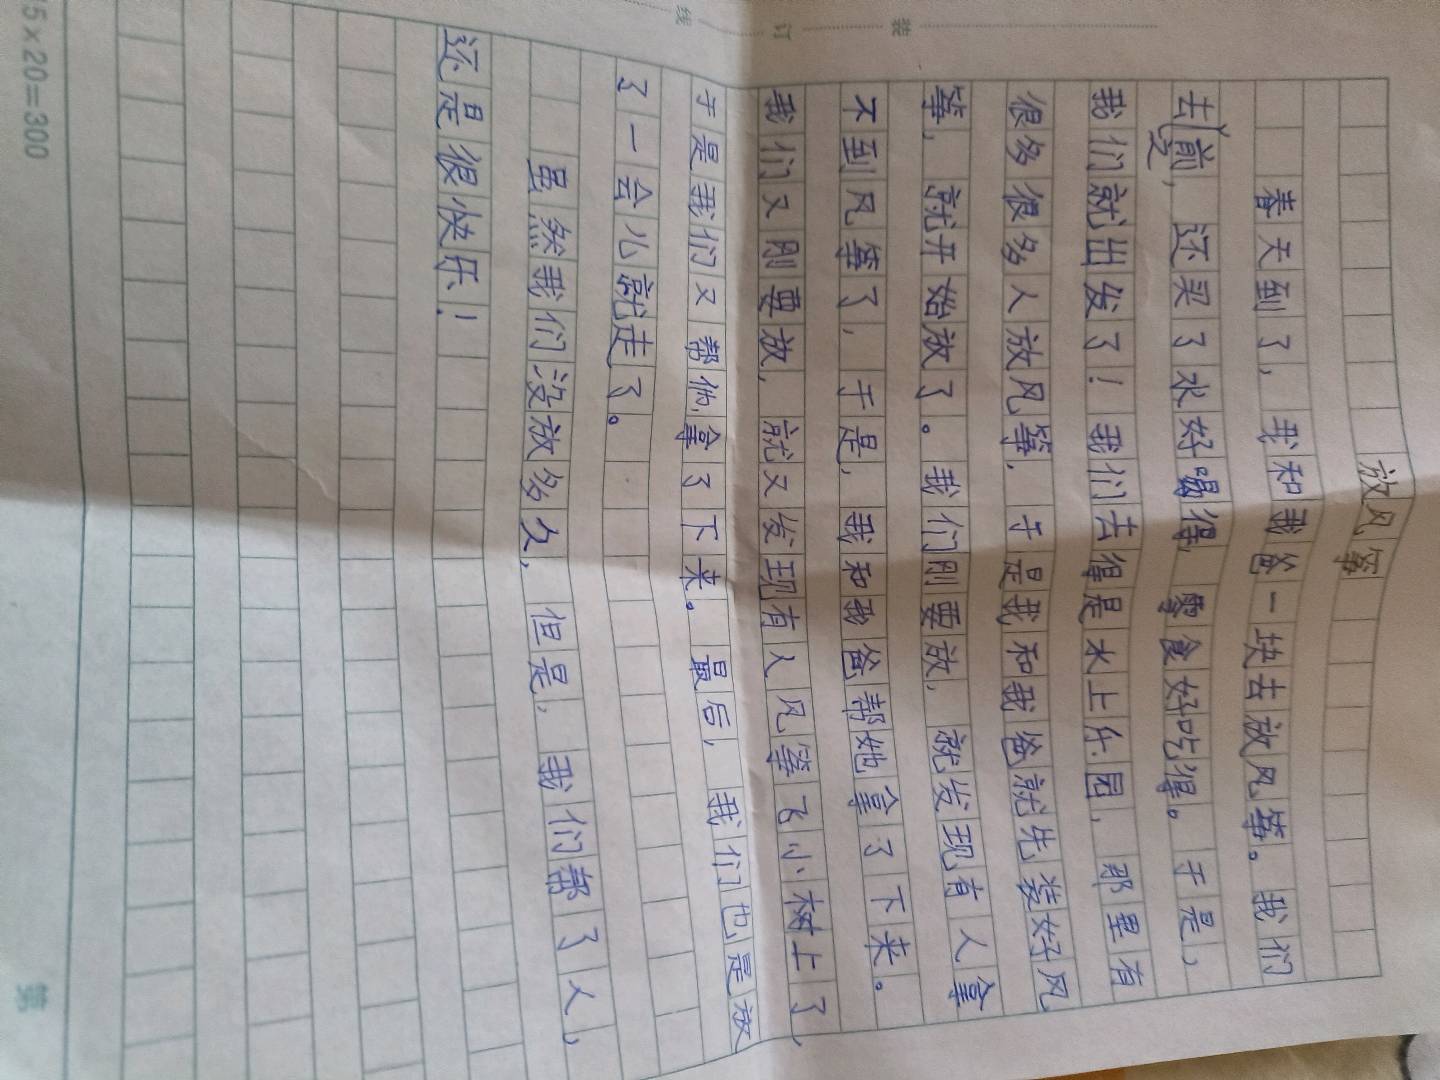 放风筝
春天到了，我和我爸一块去放风筝。我们
去之前，还买了水好喝得，零食好吃得。于是，
我们就出发了！我们去得是水上乐园，那里有
很多很多人放风筝，于是我和我爸就先装好风
筝，就开始放了。我们刚要放，就发现有人拿
不到风筝了，于是，我和我爸帮她拿了下来。
我们又刚要放，就又发现有人风筝飞小树上了，
于是我们又帮他拿了下来。最后，我们也是放
了一会儿就走了。
虽然我们没放多久，但是，我们帮了人，
还是很快乐！
装 订 线
15×20=300
第